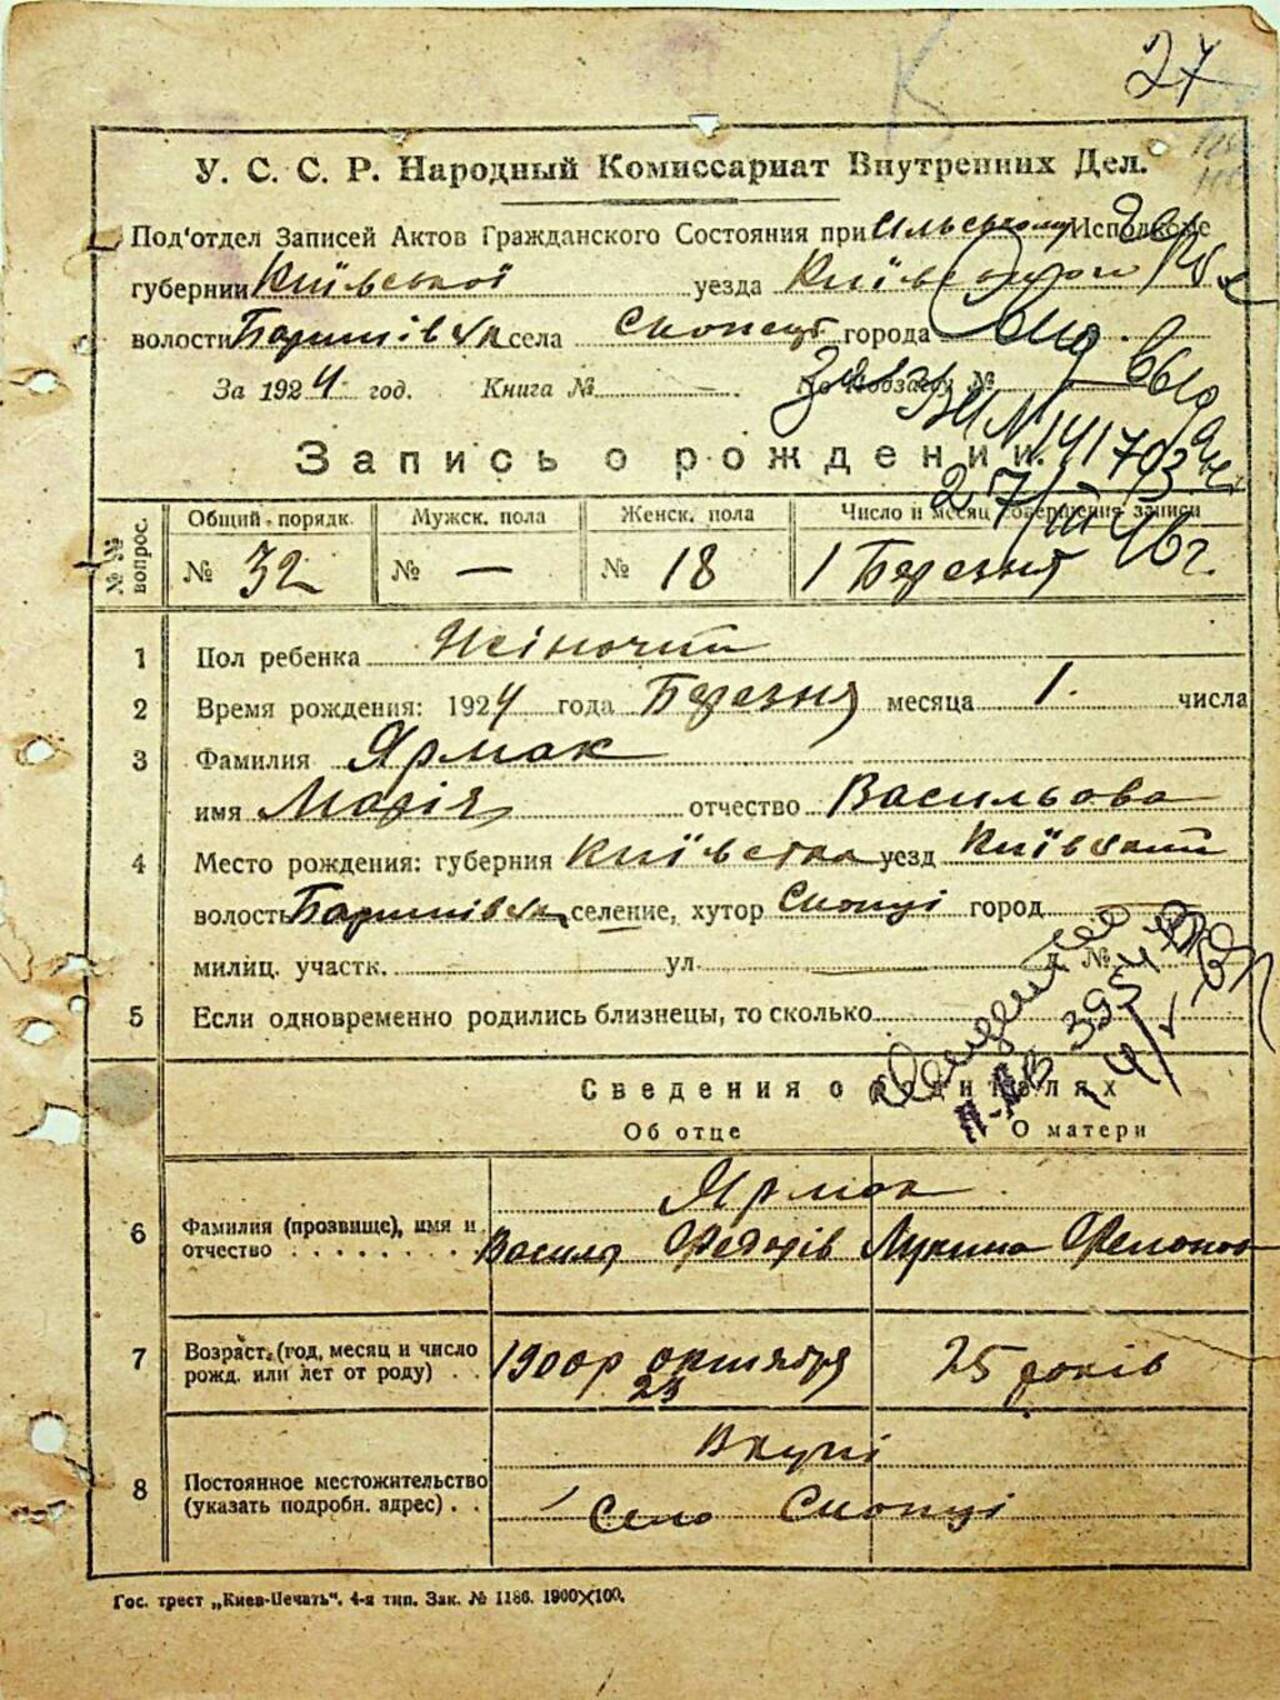 27
У. С. С. Р. Народный Комиссариат Внутренних Дел.
Под'отдел Записей Актов Гражданского Состояния при Сільському Исполкоме
губернии Київської уезда Київського
волости Баришівська села Скопців города
За 1924 год. Книга № — По Подзагсу №
Запись о рождении.
№ 141703
27/III 46 г.
№№ вопрос. Общий порядк. Мужск. пола Женск. пола Число и месяц совершения записи
№ 32 № — № 18 1 Березня
1 Пол ребенка Жіночий
2 Время рождения: 1924 года Березня месяца 1. числа
3 Фамилия Ярмак
имя Марія отчество Васильова
4 Место рождения: губерния Київська уезд Київський
волость Баришівська, селение, хутор Скопці город —
милиц. участк. ул. — д. №
5 Если одновременно родились близнецы, то сколько
Сведения о родителях
Об отце О матери
Ярмак
6 Фамилия (прозвище), имя и
отчество . . . . . . . . Василь Федорів Лукина Филонов
7 Возраст (год, месяц и число
рожд. или лет от роду) . . 1900 р октября 25 25 років
Вкупі
8 Постоянное местожительство
(указать подробн. адрес) . . Село Скопці
Гос. трест „Киев-Печать". 4-я тип. Зак. № 1186. 1900×100.